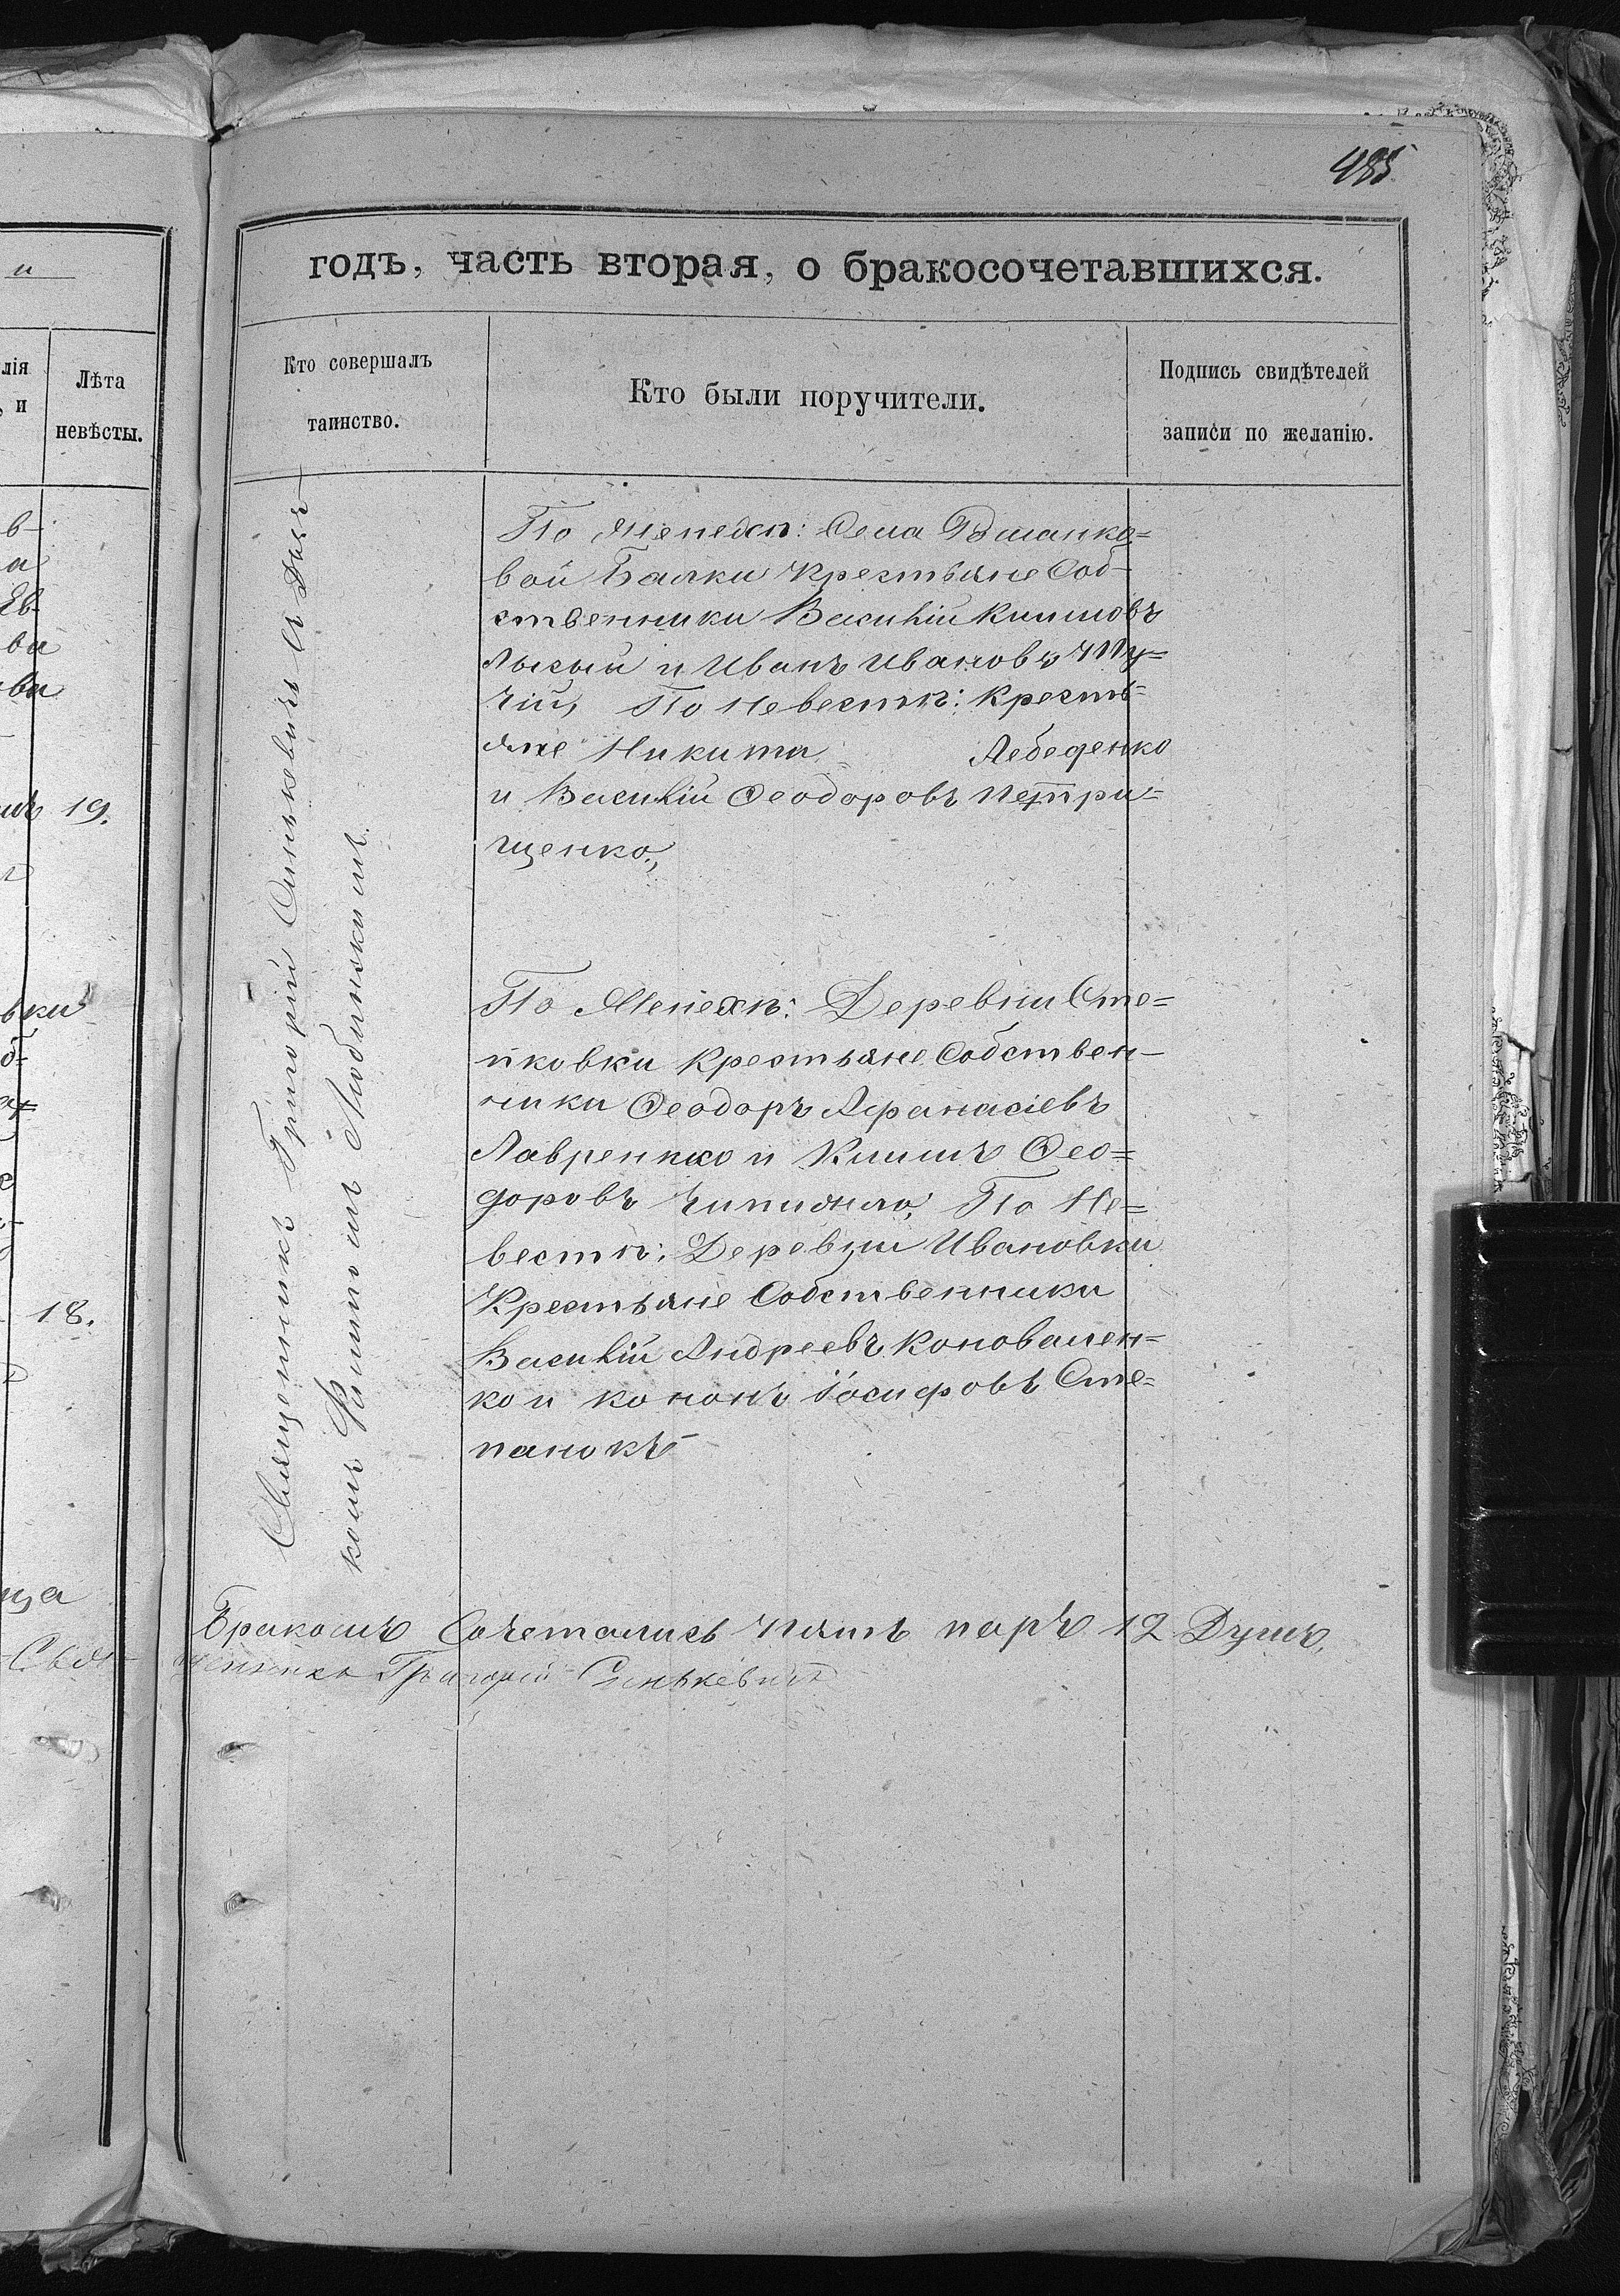 485
годъ, часть вторая, о бракосочетавшихся.
Кто совершалъ
таинство.
Кто были поручители.
Подпись свидѣтелей
записи по желанію.
и
лія
, и
Лѣта
невѣсты.
19.
18.
Священникъ Григорій Синькевичъ съ Дьяч
комъ Филиппомъ Любинскимъ
По Женехѣ: Села
вой Балки крестьяне Соб-
ственники Василій Климовъ
Лысый и Иванъ Ивановъ
чій, По Невестѣ: Кресть-
яне Никита Лебеденко
и Василій Феодоровъ Петри=
щенко,
По Женехѣ: Деревни Сте=
пковки Крестьяне Собствен-
ники Феодоръ Афанасіевъ
Лавренко и Климъ Фео=
доровъ По Не=
вестѣ: Деревни Ивановки
Крестьяне Собственники
Василій Андреевъ Коновален=
ко и Кононъ Іосифовъ Сте=
панокъ
Бракомъ Сочетались паръ 12 Душъ.
-Свя-
щенникъ Григорій Синькевичъ